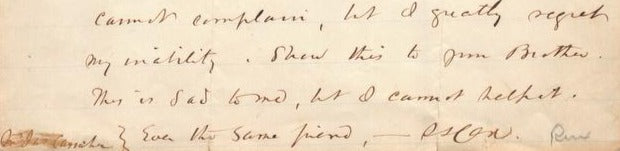 cannot complain, but I greatly regret
my inability. Show this to your Brother.
This is Sad to me, but I cannot help it.
} Ever the Same friend, —